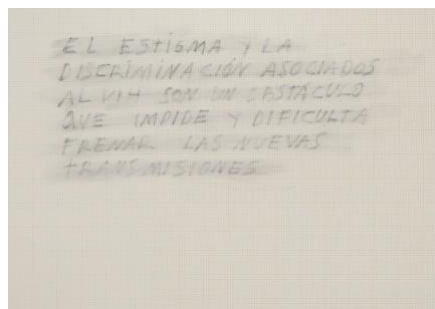 EL ESTIGMA Y LA
DISCRIMINACIÓN ASOCIADOS
AL VIH SON UN OBSTÁCULO
QUE IMPIDE Y DIFICULTA
FRENAR LAS NUEVAS
TRANSMISIONES